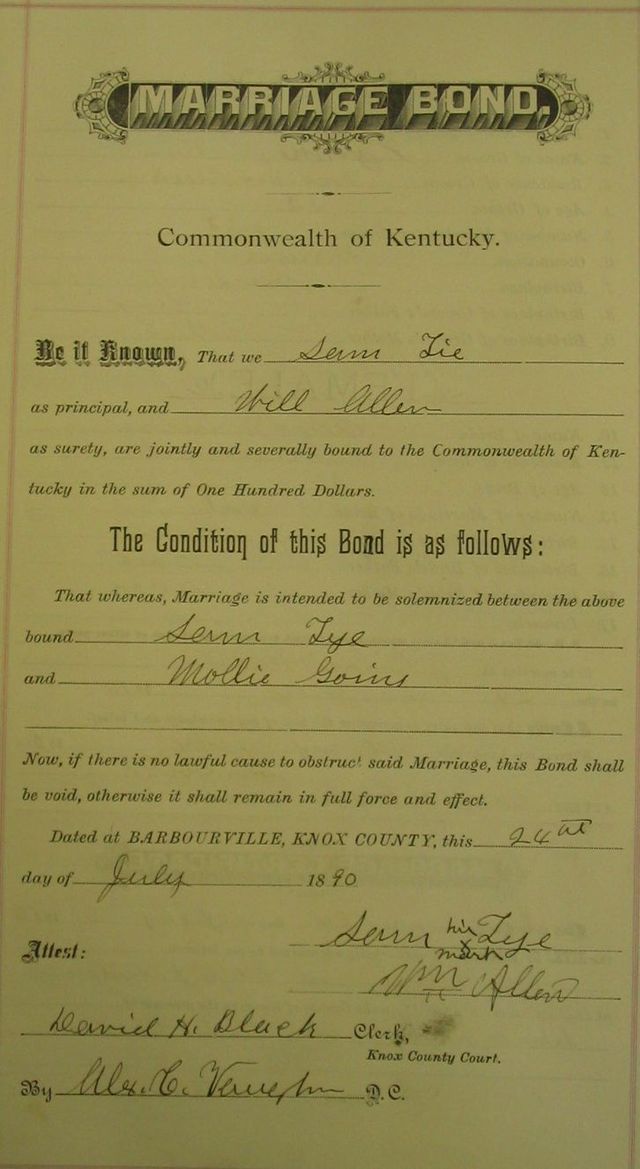 MARRIAGE BOND.
Commonwealth of Kentucky.
Be it Known, That we Sam Tie
as principal, and Will Allen
as surety, are jointly and severally bound to the Commonwealth of Ken-
tucky in the sum of One Hundred Dollars.
The Condition of this Bond is as follows:
That whereas, Marriage is intended to be solemnized between the above
bound Sam Tye
and Mollie Goins
Now, if there is no lawful cause to obstruct said Marriage, this Bond shall
be void, otherwise it shall remain in full force and effect.
Dated at BARBOURVILLE, KNOX COUNTY, this 24th
day of July 1890
Sam his x mark Tye
Attest:
Wm Allen
David H. Black Clerk,
Knox County Court.
By Alex. C. D.C.